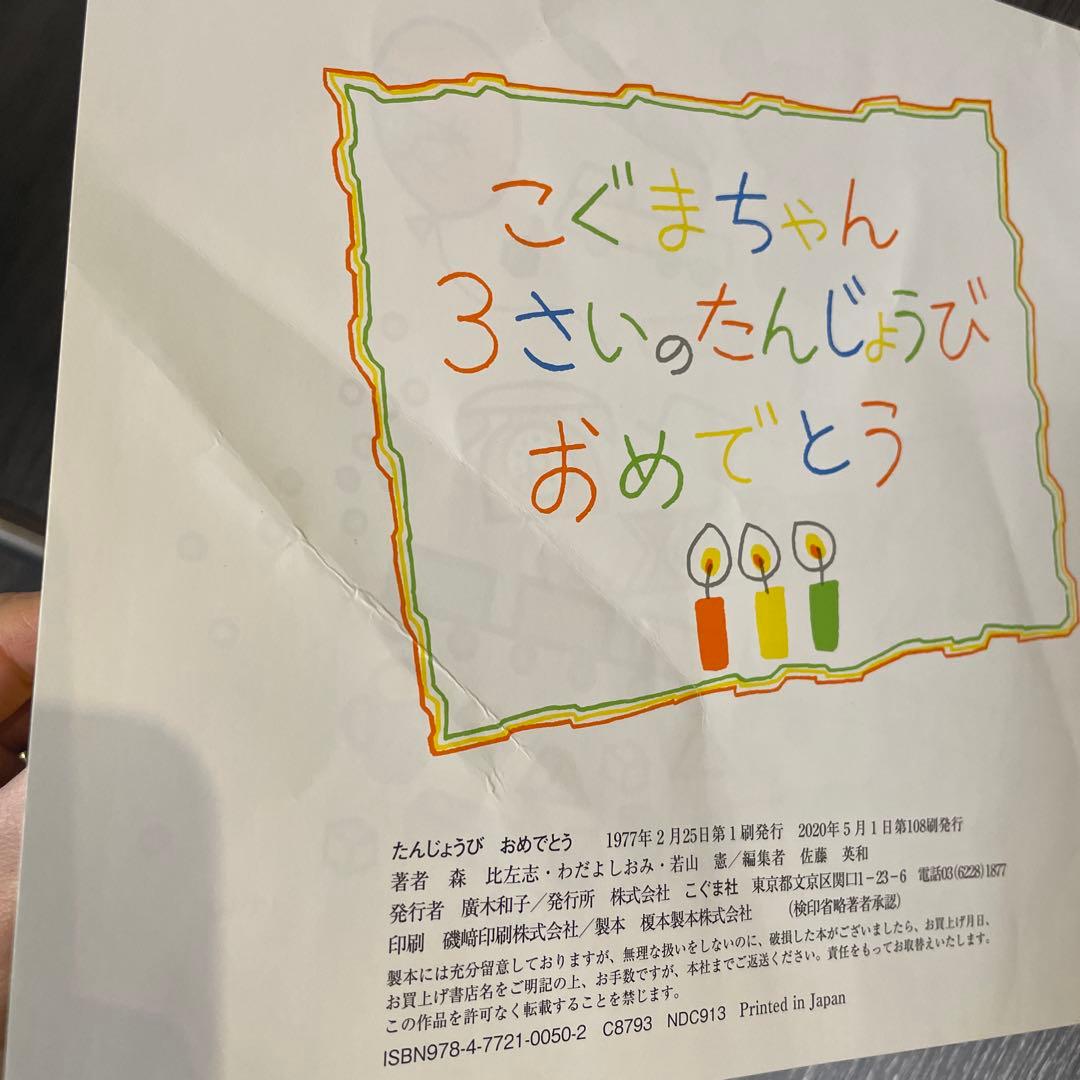 こぐまちゃん
3さいのたんじょうび
おめでとう
たんじょうび おめでとう 1977年2月25日第1刷発行 2020年5月1日第108刷発行
著者 森 比左志・わだよしおみ・若山 憲／編集者 佐藤 英和
発行者 廣木和子／発行所 株式会社 こぐま社 東京都文京区関口1-23-6 電話03(6228)1877
印刷 磯﨑印刷株式会社／製本 榎本製本株式会社 (検印省略著者承認)
製本には充分留意しておりますが、無理な扱いをしないのに、破損した本がございましたら、お買上げ月日、
お買上げ書店名をご明記の上、お手数ですが、本社までご返送ください。責任をもってお取替えいたします。
この作品を許可なく転載することを禁じます。
ISBN978-4-7721-0050-2 C8793 NDC913 Printed in Japan